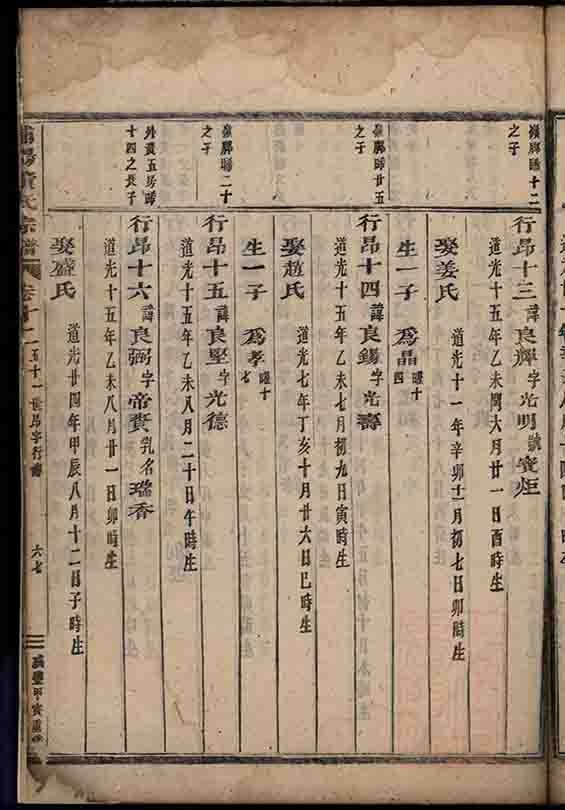 行昂十三 諱良輝 字光明 號安炬
道光十五年乙未閏六月廿一日酉時生
娶姜氏
道光十一年辛卯十一月初七日卯時生
生一子 爲晶 曜十四
行昂十四 諱良錫 字光壽
道光十五年乙未七月初九日寅時生
娶趙氏
道光七年丁亥十月廿六日巳時生
生一子 爲孝 曜十七
行昂十五 諱良堅 字光德
道光十五年乙未八月二十日午時生
外黃五房 十四之長子
行昂十六 諱良弼 字帝賚 乳名瑞香
道光十五年乙未八月廿一日卯時生
娶盛氏
道光廿四年甲辰八月十二日子時生
黃氏宗譜 卷十二 五十一世昂字行
六七
咸豐甲寅重